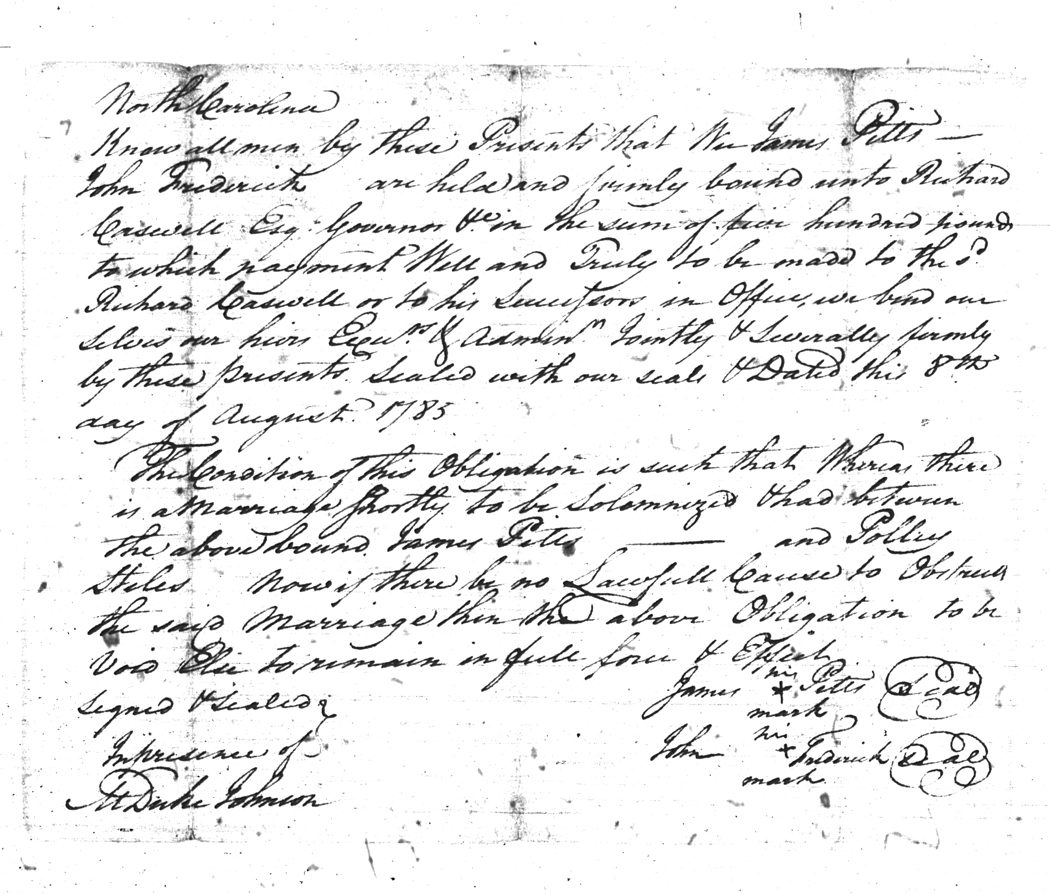 North Carolina
Know all men by these Presents that We James Pitts —
John Frederick are held and firmly bound unto Richard
Caswell Esqr Governor &c in the sum of five hundred pounds
to which payment Well and Truly to be made to the sd
Richard Caswell or to his Successors in Office, we bind our
selves our heirs Exers & Adminrs Jointly & Severally firmly
by these presents Sealed with our seals & Dated this 8th
day of August 1785
The Condition of this Obligation is such that Whereas there
is a Marriage Shortly to be Solemnized & had between
the above bound James Pitts —— and Polley
Stiles Now if there be no Lawfull Cause to Obstruct
the said Marriage then the above Obligation to be
Void Else to remain in full force & Effect
Signed & Sealed
In presence of
Duke Johnson
James his x mark Pitts Seal
John his x mark Frederick Seal